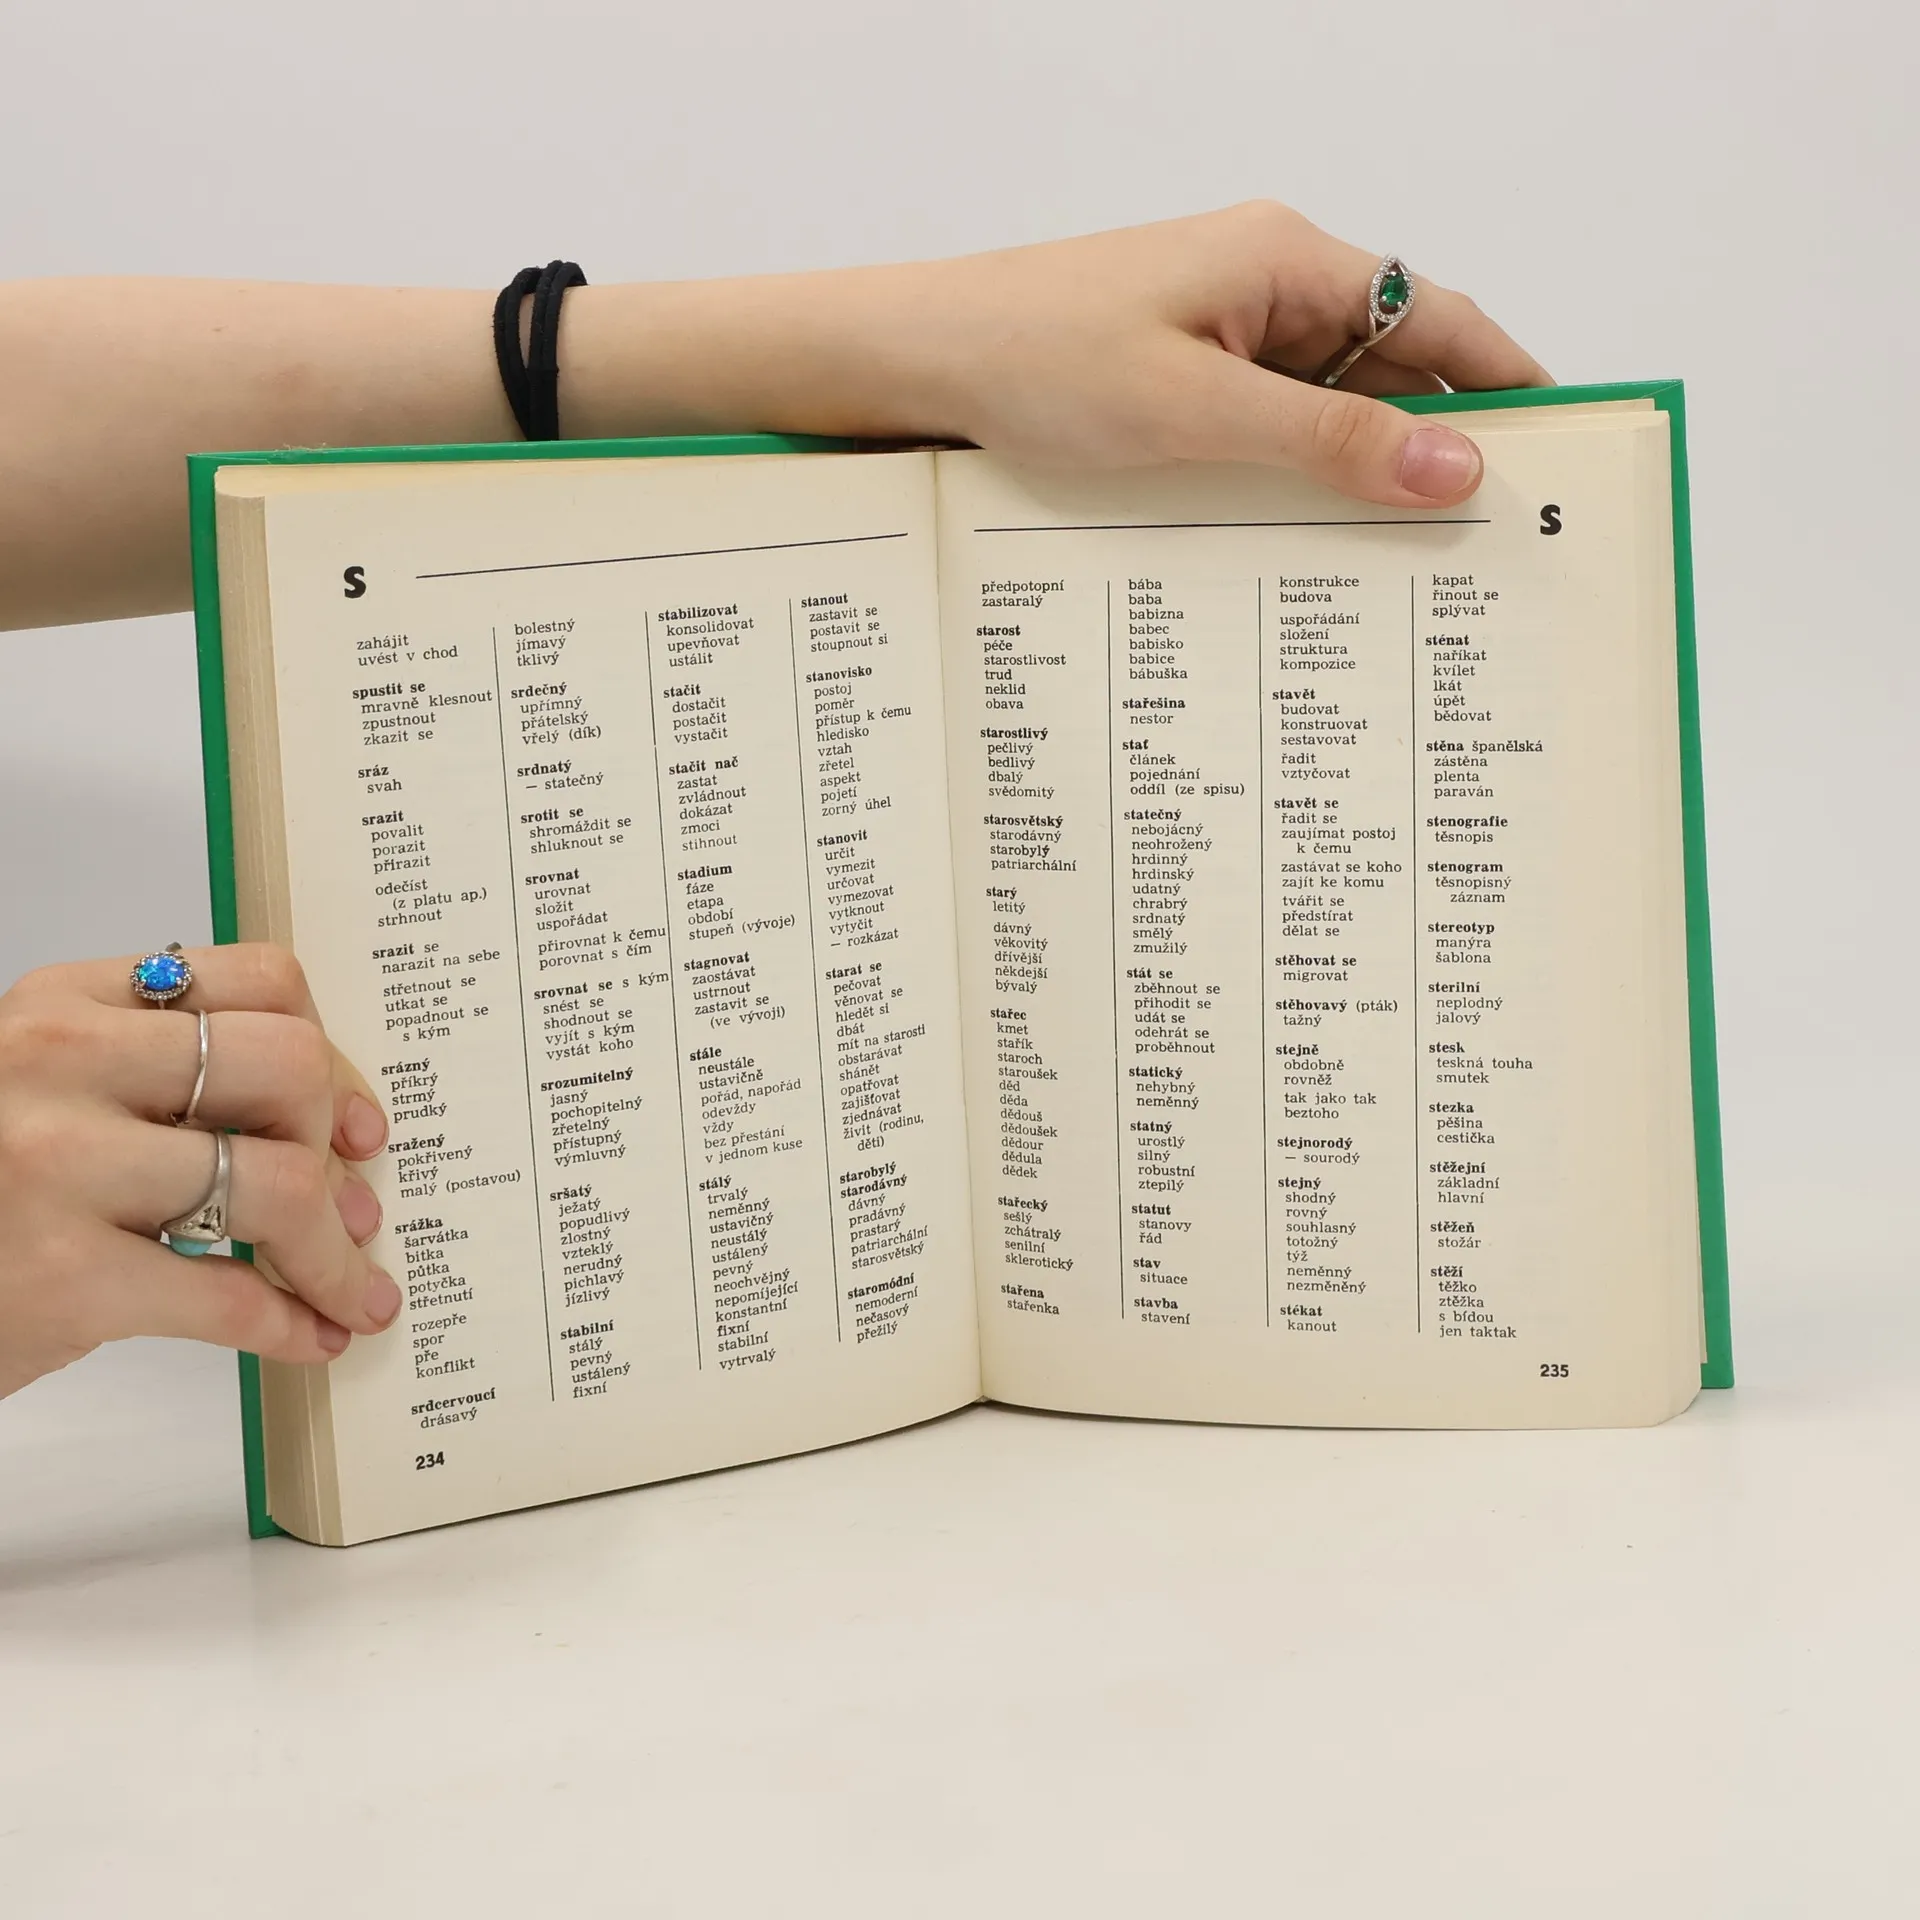 S
zahájit
uvést v chod
spustit se
mravně klesnout
zpustnout
zkazit se
sráz
svah
srazit
povalit
porazit
přirazit
odečíst
(z platu ap.)
strhnout
srazit se
narazit na sebe
střetnout se
utkat se
popadnout se
s kým
srázný
příkrý
strmý
prudký
sražený
pokřivený
křivý
malý (postavou)
srážka
šarvátka
bitka
půtka
potyčka
střetnutí
rozepře
spor
pře
konflikt
srdcervoucí
drásavý
bolestný
jímavý
tklivý
srdečný
upřímný
přátelský
vřelý (dík)
srdnatý
— statečný
srotit se
shromáždit se
shluknout se
srovnat
urovnat
složit
uspořádat
přirovnat k čemu
porovnat s čím
srovnat se s kým
snést se
shodnout se
vyjít s kým
vystát koho
srozumitelný
jasný
pochopitelný
zřetelný
přístupný
výmluvný
sršatý
ježatý
popudlivý
zlostný
vzteklý
nerudný
pichlavý
jízlivý
stabilní
stálý
pevný
ustálený
fixní
stabilizovat
konsolidovat
upevňovat
ustálit
stačit
dostačit
postačit
vystačit
stačit nač
zastat
zvládnout
dokázat
zmoci
stihnout
stadium
fáze
etapa
období
stupeň (vývoje)
stagnovat
zaostávat
ustrnout
zastavit se
(ve vývoji)
stále
neustále
ustavičně
pořád, napořád
odevždy
vždy
bez přestání
v jednom kuse
stálý
trvalý
neměnný
ustavičný
neustálý
ustálený
pevný
neochvějný
nepomíjející
konstantní
fixní
stabilní
vytrvalý
stanout
zastavit se
postavit se
stoupnout si
stanovisko
postoj
poměr
přístup k čemu
hledisko
vztah
zřetel
aspekt
pojetí
zorný úhel
stanovit
určit
vymezit
určovat
vymezovat
vytknout
vytyčit
— rozkázat
starat se
pečovat
věnovat se
hledět si
dbát
mít na starosti
obstarávat
shánět
opatřovat
zajišťovat
zjednávat
živit (rodinu,
děti)
starobylý
starodávný
dávný
pradávný
prastarý
patriarchální
starosvětský
staromódní
nemoderní
nečasový
přežilý
234
S
předpotopní
zastaralý
starost
péče
starostlivost
trud
neklid
obava
starostlivý
pečlivý
bedlivý
dbalý
svědomitý
starosvětský
starodávný
starobylý
patriarchální
starý
letitý
dávný
věkovitý
dřívější
někdejší
bývalý
stařec
kmet
stařík
staroch
staroušek
děd
děda
dědouš
dědoušek
dědour
dědula
dědek
stařecký
sešlý
zchátralý
senilní
sklerotický
stařena
stařenka
bába
baba
babizna
babec
babisko
babice
bábuška
stařešina
nestor
stať
článek
pojednání
oddíl (ze spisu)
statečný
nebojácný
neohrožený
hrdinný
hrdinský
udatný
chrabrý
srdnatý
smělý
zmužilý
stát se
zběhnout se
přihodit se
udát se
odehrát se
proběhnout
statický
nehybný
neměnný
statný
urostlý
silný
robustní
ztepilý
statut
stanovy
řád
stav
situace
stavba
stavení
konstrukce
budova
uspořádání
složení
struktura
kompozice
stavět
budovat
konstruovat
sestavovat
řadit
vztyčovat
stavět se
řadit se
zaujímat postoj
k čemu
zastávat se koho
zajít ke komu
tvářit se
předstírat
dělat se
stěhovat se
migrovat
stěhovavý (pták)
tažný
stejně
obdobně
rovněž
tak jako tak
beztoho
stejnorodý
— sourodý
stejný
shodný
rovný
souhlasný
totožný
týž
neměnný
nezměněný
stékat
kanout
kapat
řinout se
splývat
sténat
naříkat
kvílet
lkát
úpět
bědovat
stěna španělská
zástěna
plenta
paraván
stenografie
těsnopis
stenogram
těsnopisný
záznam
stereotyp
manýra
šablona
sterilní
neplodný
jalový
stesk
teskná touha
smutek
stezka
pěšina
cestička
stěžejní
základní
hlavní
stěžeň
stožár
stěží
těžko
ztěžka
s bídou
jen taktak
235